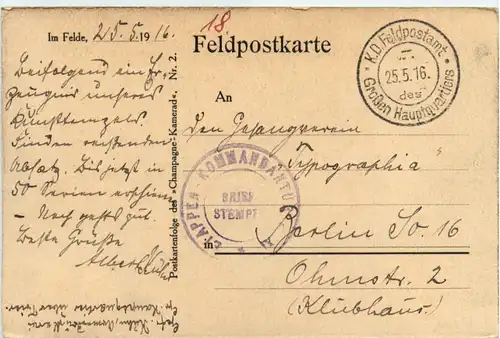 18.
Im Felde, 25. 5. 1916.
Feldpostkarte
K.D. Feldpostamt
25.5.16.
des
Großen Hauptquartiers
Beifolgend ein Er-
zeugnis unseres
Kunsttempels.
Finden reißenden
Absatz. Bis jetzt in
50 Serien erschien
– Noch geht's gut.
Beste Grüße
Albert
Postkartenfolge des »Champagne-Kamerad«. Nr. 2.
An
Den Gesangverein
„Typographia“
in Berlin So. 16
Ohmstr. 2
(Klubhaus.)
ETAPPEN-KOMMANDANTUR
BRIEF
STEMPEL